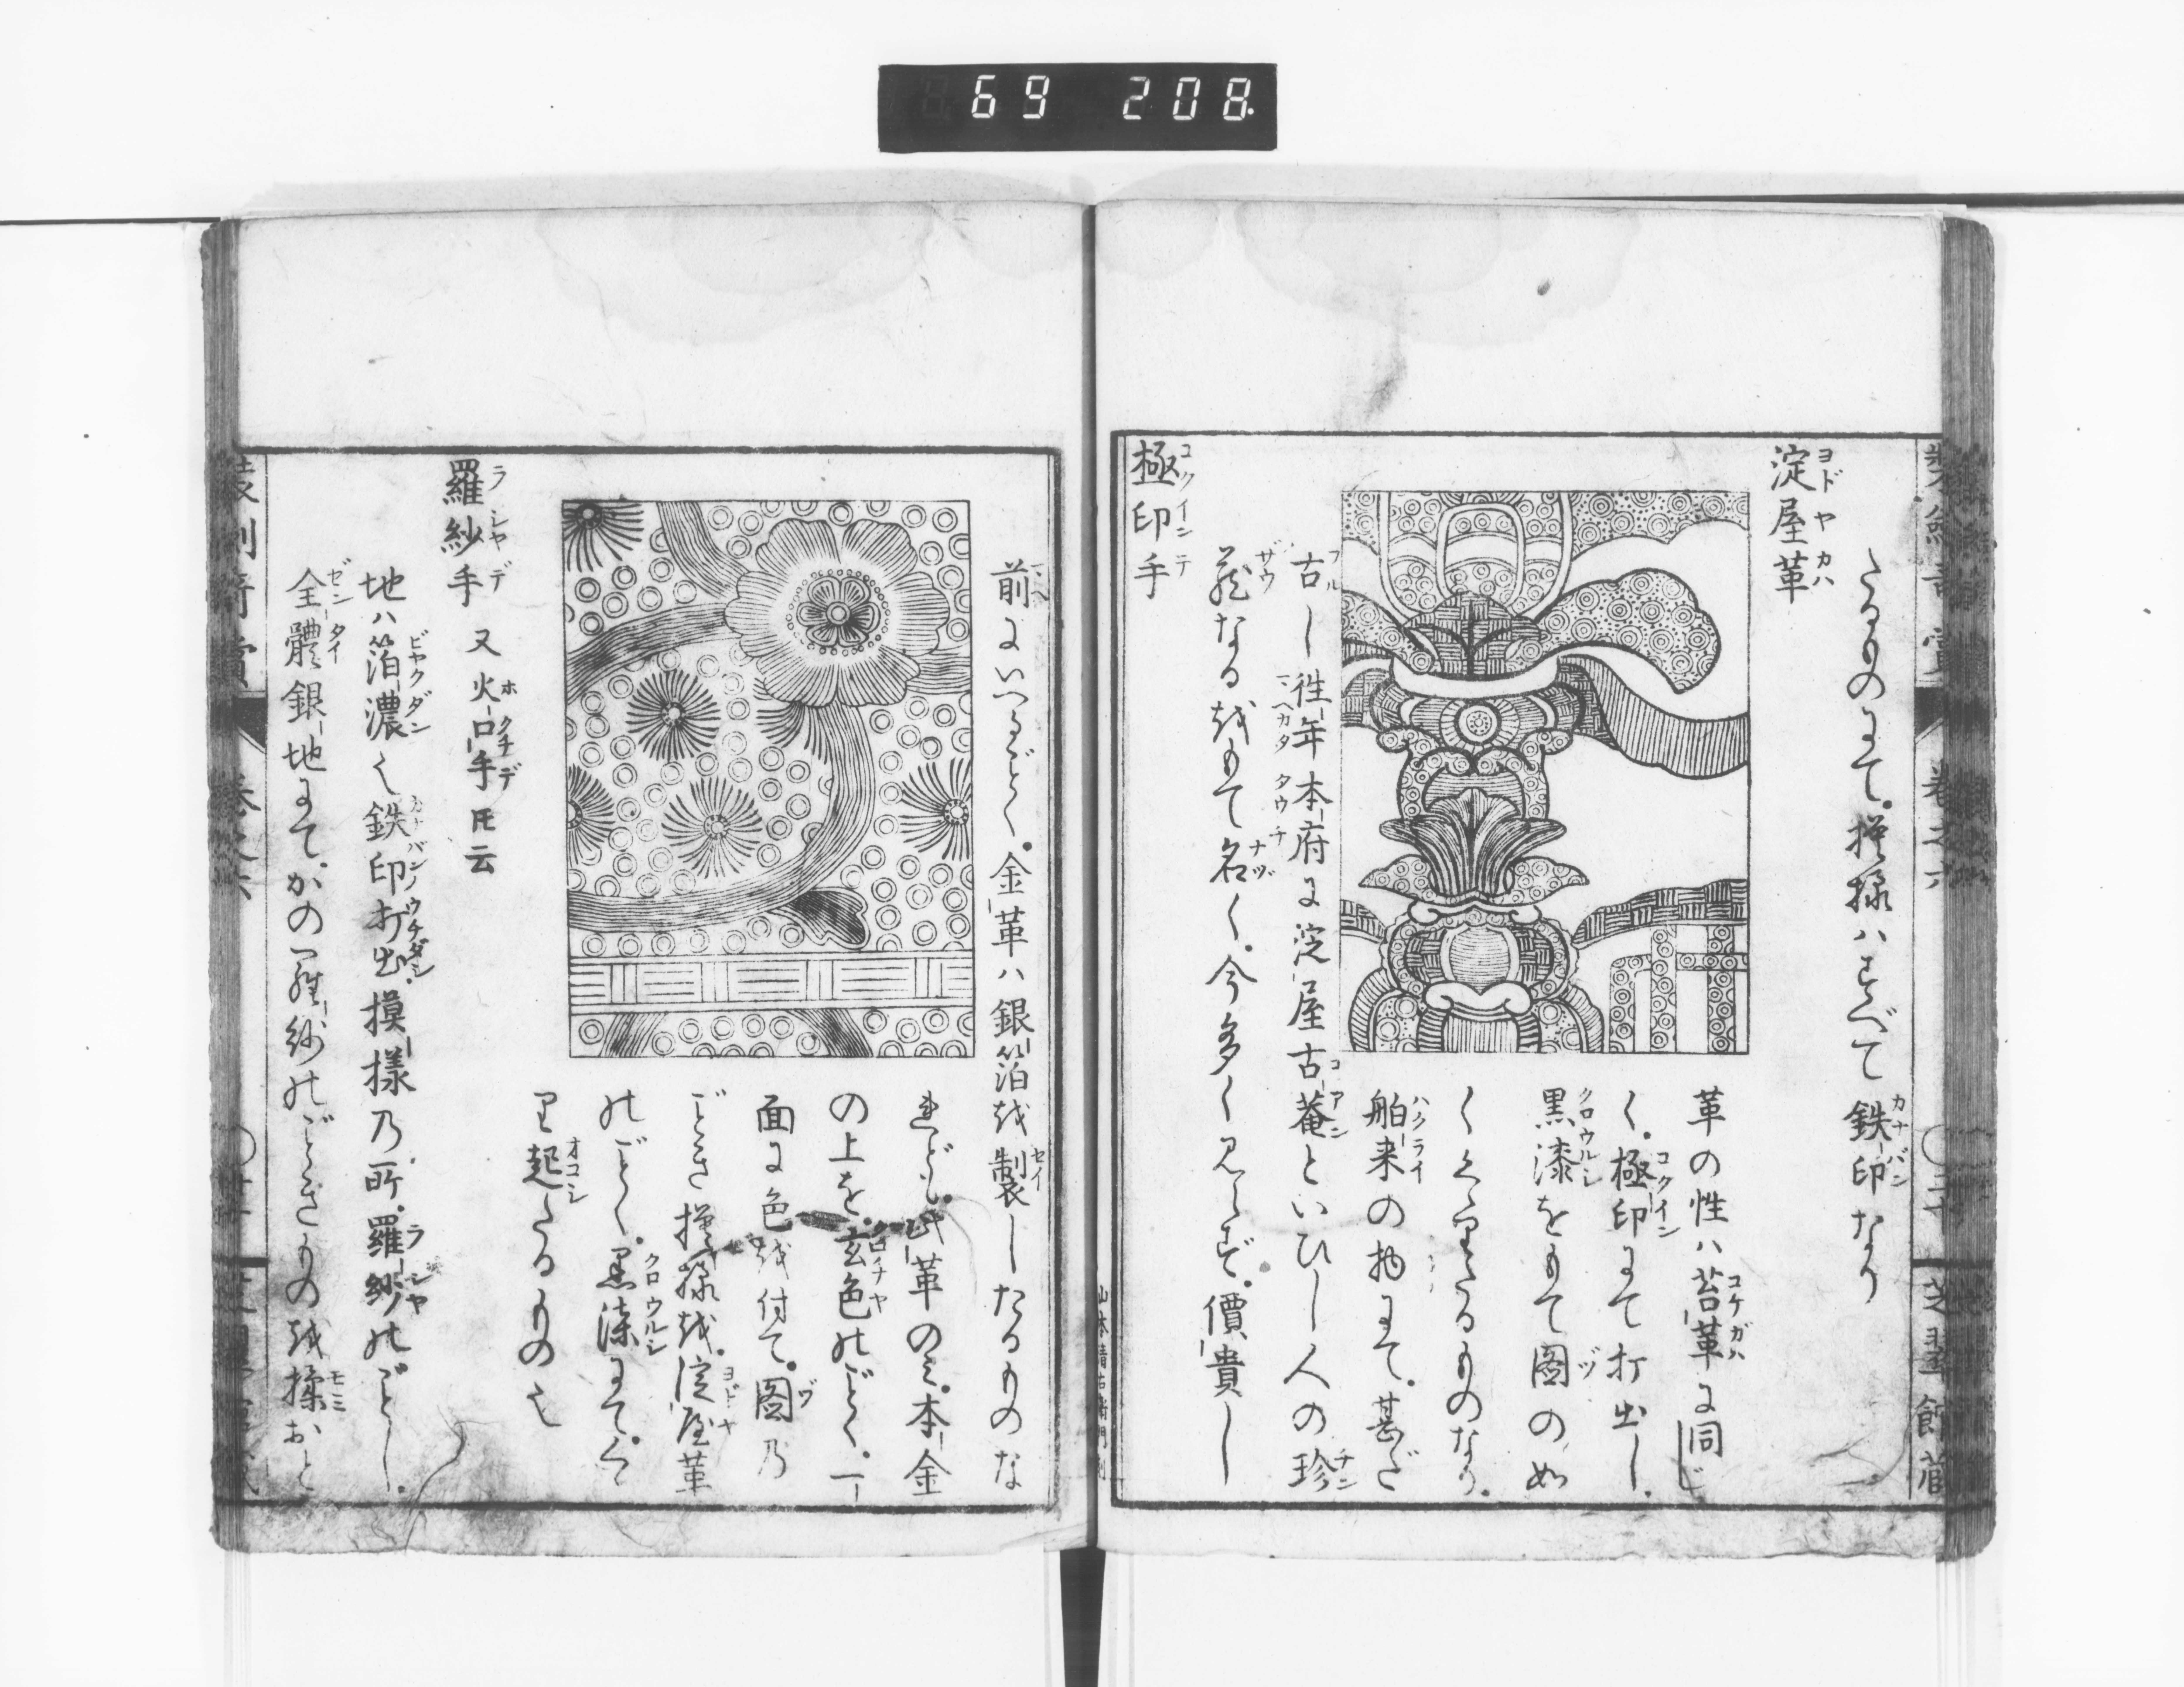 69 208
たるものにて。模様ハすべて鉄印なり
淀屋革
革の性ハ苔革に同じ
く。極印にて打出し。
黒漆をもて図の如
くくゝりたるものなり。
舶来の物にて。甚だ
古し往年本府に淀屋古菴といひし人の珍
蔵なるをもて名く。今多く見えず。價貴し
極印手
前にいへるごとく。金革ハ銀箔を製したるものな
れども。此革のミ。本金
の上を。玄色のごとく。一
面に色を付て。図の
ごとき模様を。淀屋革
のごとく。黒漆にてくゝ
り起したるもの也
羅紗手 又火口手 ト云
地ハ箔濃く鉄印打出。摸様乃所。羅紗のごとし。
全體銀地にて。かの羅紗のごときものを揉おと
巻之六
芝翠館蔵